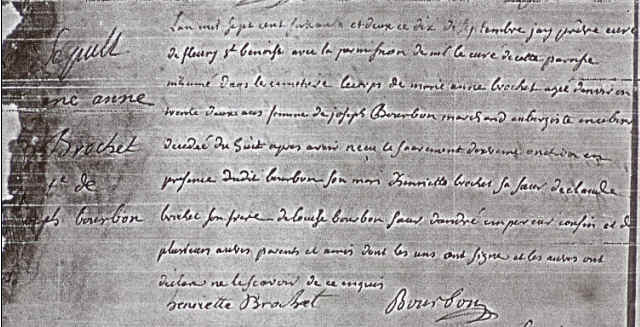 Sepult
L'an mil sept cent soixante et deux ce dix de septembre jay prêtre curé
de fleury st benoist avec la permission de mr le curé de cette paroisse
inhumé dans le cimetiere le corps de marie anne brochet agee d'environ
ne anne
trente deux ans femme de joseph Bourbon marchand aubergiste en ce lieu
Brochet
decedeé du huit apres avoir recu le sacrement d'extreme onction en
fe de
presence dudit bourbon son mari d'henriette brochet sa sœur de claude
ph bourbon
brochet son frere de louise bourbon sœur d'andré empereur cousin et de
plusieurs autres parents et amis dont les uns ont signe et les autres ont
declaré ne le scavoir de ce enquis
henriette Brochet
Bourbon